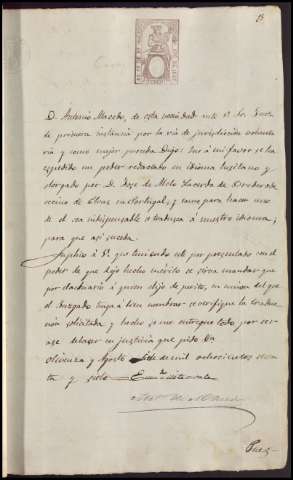 D. Antonio Macedo, de esta vecindad ante V. Sr. Juez
de primera instancia por la via de jurisdicción volunta
ria y como mejor proceda Digo: Que á mi favor se ha
expedido un poder redactado en idioma lusitano y
otorgado por D. Jose de Melo Lacerda de
vecino de Elvas en Portugal, y como para hacer uso
de el sea indispensable se traduzca á nuestro idioma,
para que así suceda.
Suplico á V. que teniendo este por presentado con el
poder de que dejo hecho mérito se sirva mandar que
por á quien elijo de perito, en union del que
el Juzgado tenga á bien nombrar se verifique la traduc
cion solicitada y hecho se me entregue todo por ser
asi de hacer en justicia que pido
Olivenza y Agosto de mil ochocientos
ta y siete
Juez